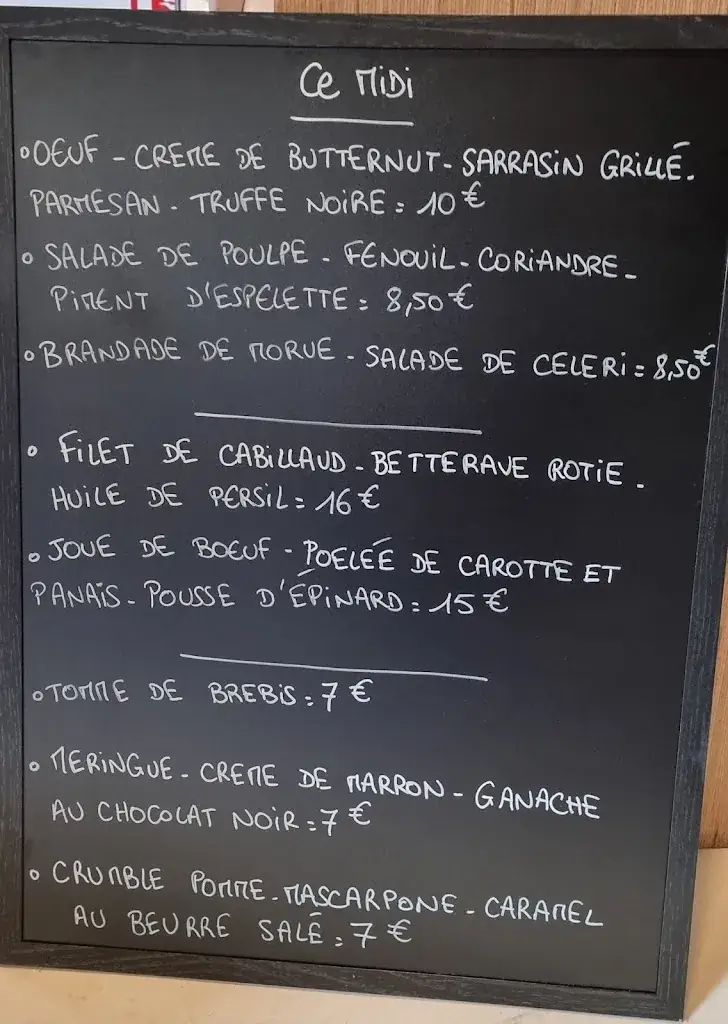 Ce MiDi
° OEUF - CREME DE BUTTERNUT - SARRASIN GRILLÉ.
PARMESAN - TRUFFE NOIRE = 10 €
° SALADE DE POULPE - FENOUIL - CORIANDRE -
PIMENT D'ESPELETTE = 8,50 €
° BRANDADE DE MORUE - SALADE DE CELERI = 8,50 €
° FILET DE CABILLAUD - BETTERAVE ROTIE -
HUILE DE PERSIL = 16 €
° JOUE DE BOEUF - POELÉE DE CAROTTE ET
PANAIS - POUSSE D'ÉPINARD = 15 €
° TOMME DE BREBIS = 7 €
° MERINGUE - CREME DE MARRON - GANACHE
AU CHOCOLAT NOIR = 7 €
° CRUMBLE POMME - MASCARPONE - CARAMEL
AU BEURRE SALÉ = 7 €